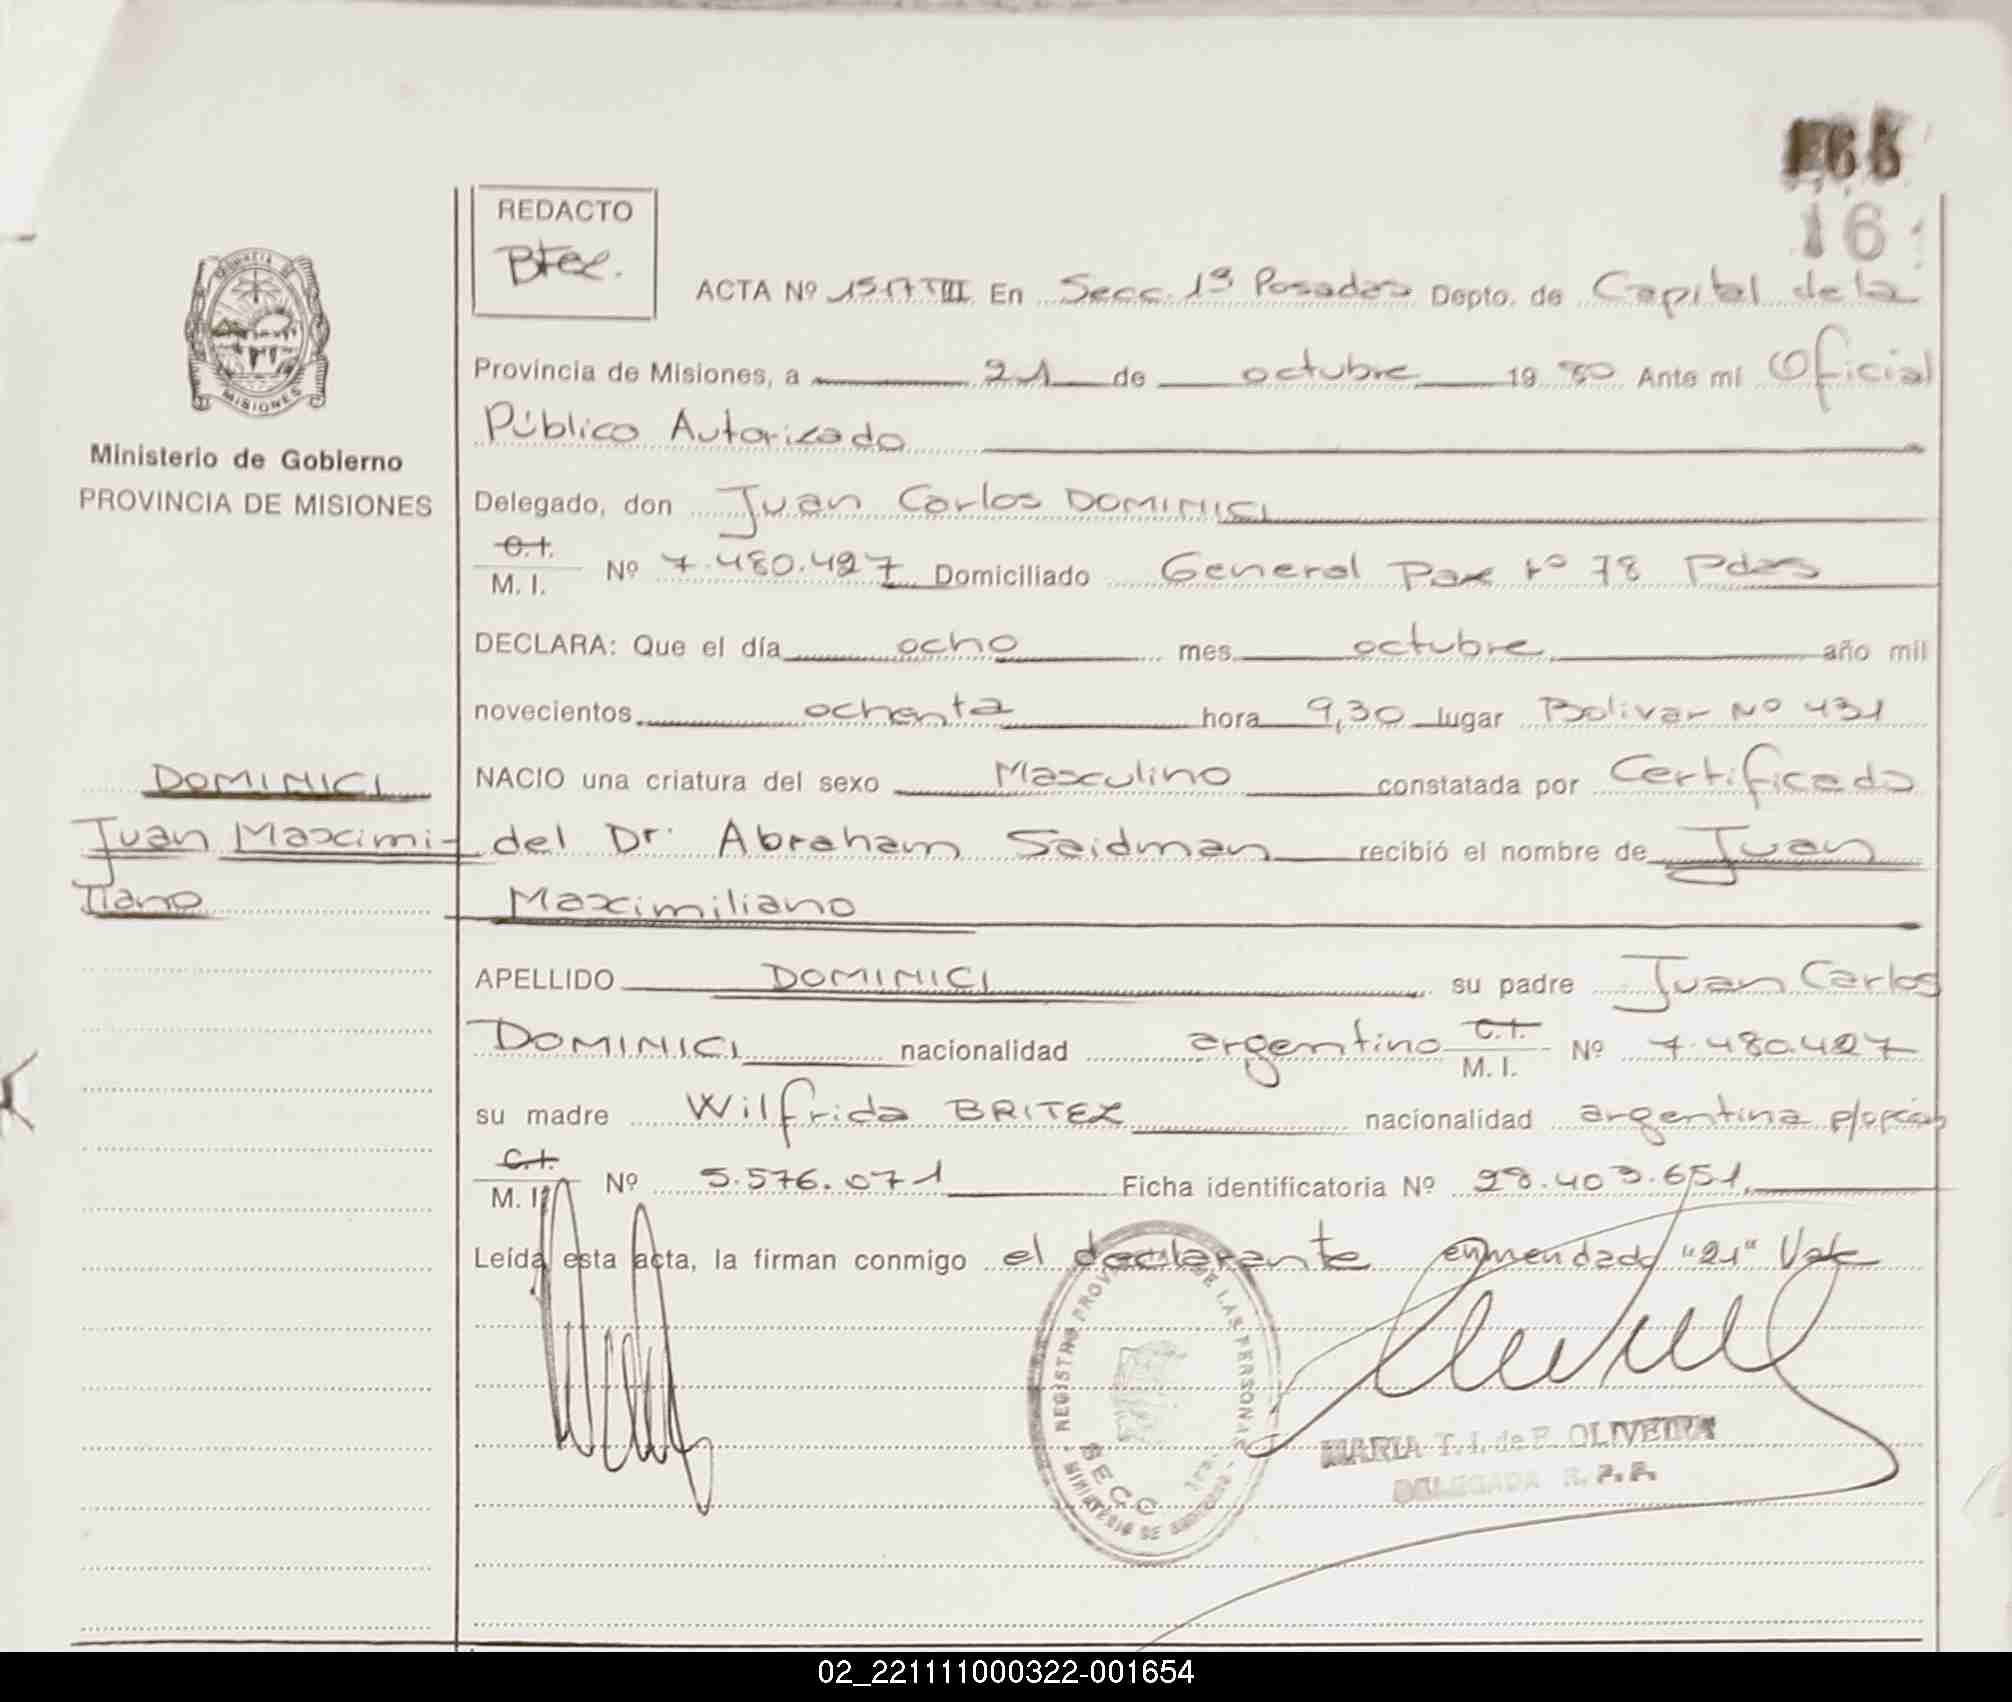 16
REDACTO
ACTA Nº 1517 TIII En Secc. 1ª Posadas Depto. de Capital de la
Provincia de Misiones, a 21 de octubre 19 80 Ante mí Oficial
Público Autorizado
Delegado, don Juan Carlos DOMINICI
C.I.
M. I. Nº 7.480.427 Domiciliado General Paz Nº 78 Pdas
DECLARA: Que el día ocho mes octubre año mil
novecientos ochenta hora 9,30 lugar Bolivar Nº 431
NACIO una criatura del sexo Masculino constatada por Certificado
del Dr. Abraham Saidman recibió el nombre de Juan
Maximiliano
APELLIDO DOMINICI su padre Juan Carlos
DOMINICI nacionalidad argentino C.I. M. I. Nº 7.480.427
su madre Wilfrida BRITEZ nacionalidad argentina p/opción
C.I.
M. I. Nº 5.576.071 Ficha identificatoria Nº 28.403.651.
Leída esta acta, la firman conmigo el declarante enmendado "21" Vale
PROVINCIA DE
MISIONES
Ministerio de Gobierno
PROVINCIA DE MISIONES
DOMINICI
Juan Maximi-
liano
REGISTRO PROV DE LAS PERSONAS
MINISTERIO DE
SECC 1ra.
MARIA T. I. de F. OLIVEIRA
DELEGADA R. P. P.
02_221111000322-001654